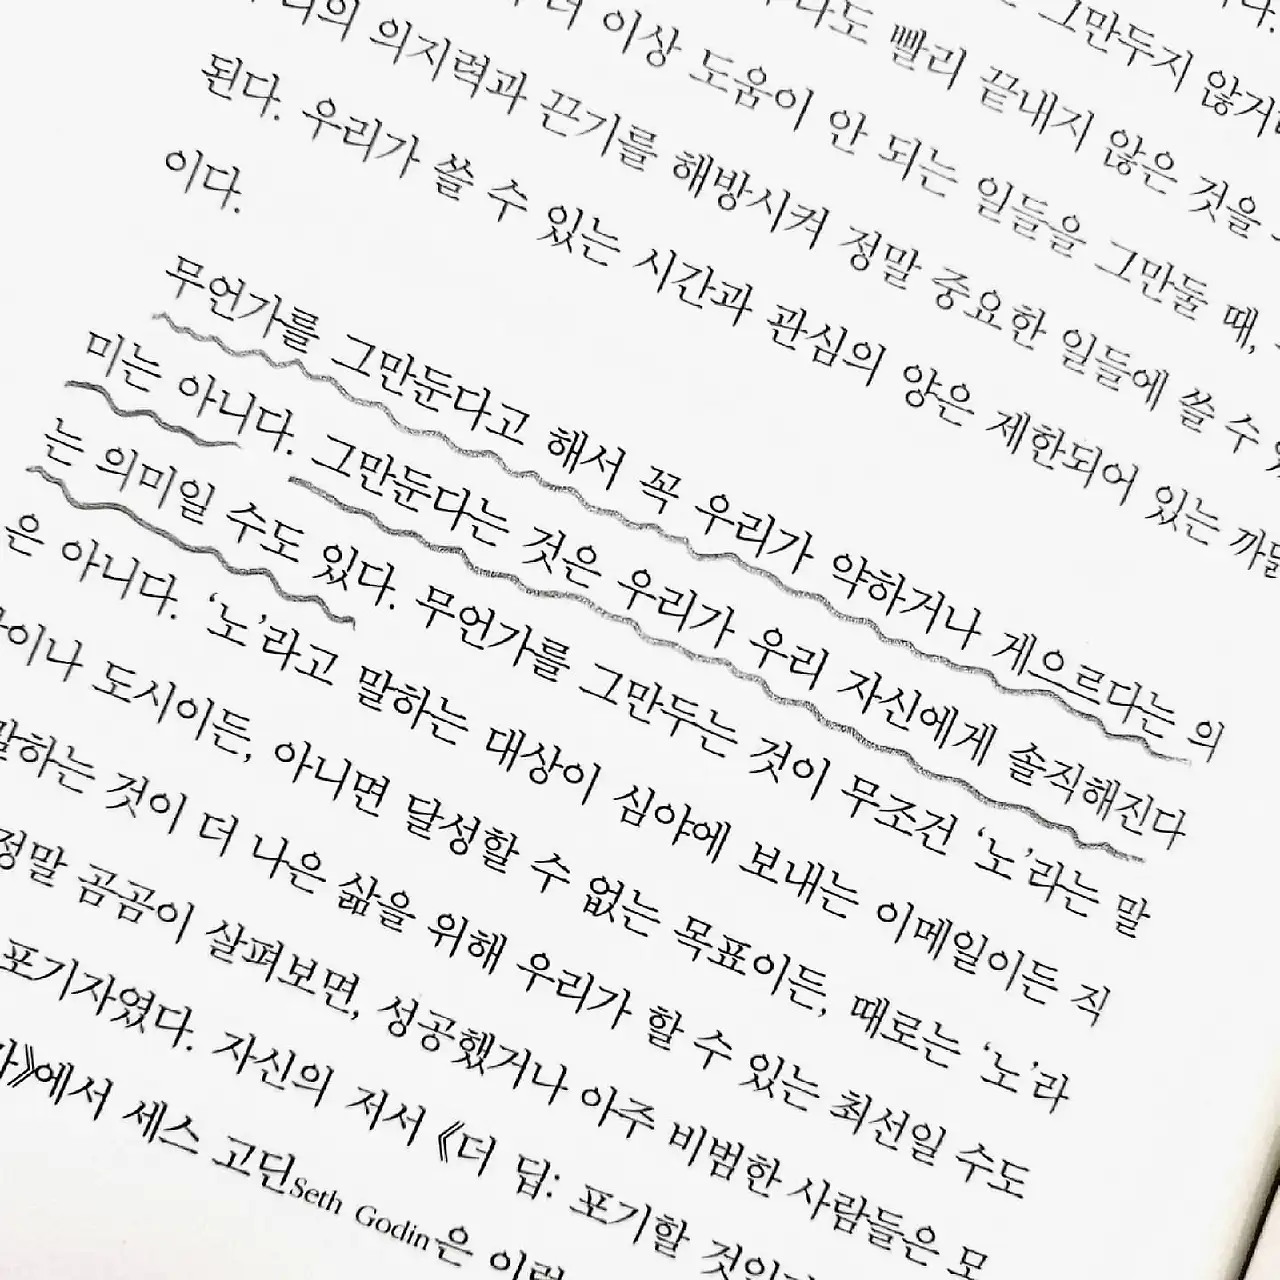 그만두지 않거
빨리 끝내지 않은 것을
더 이상 도움이 안 되는 일들을 그만둘 때,
의지력과 끈기를 해방시켜 정말 중요한 일들에 쓸 수
된다. 우리가 쓸 수 있는 시간과 관심의 양은 제한되어 있는 까닭
이다.
무언가를 그만둔다고 해서 꼭 우리가 약하거나 게으르다는 의
미는 아니다. 그만둔다는 것은 우리가 우리 자신에게 솔직해진다
는 의미일 수도 있다. 무언가를 그만두는 것이 무조건 ‘노’라는 말
은 아니다. ‘노’라고 말하는 대상이 심야에 보내는 이메일이든 직
이나 도시이든, 아니면 달성할 수 없는 목표이든, 때로는 ‘노’라
말하는 것이 더 나은 삶을 위해 우리가 할 수 있는 최선일 수도
정말 곰곰이 살펴보면, 성공했거나 아주 비범한 사람들은 모
포기자였다. 자신의 저서 《더 딥: 포기할 것인
》에서 세스 고딘Seth Godin은 이런